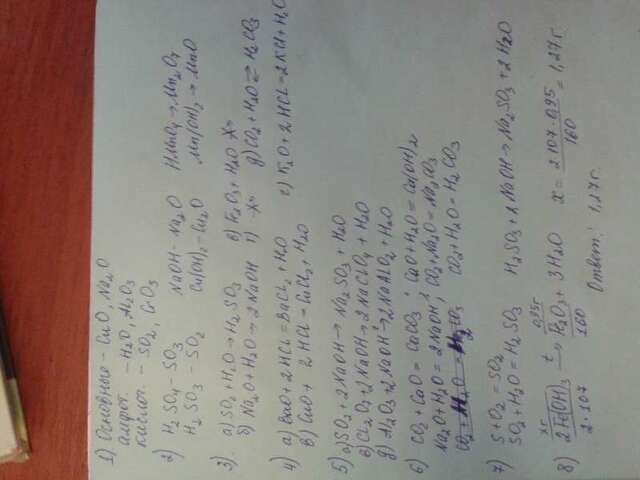 1) Основные - CuO, Na2O
амфот. - H2O, Al2O3
кислот. - SO2, CrO3
2) H2SO4 - SO3 NaOH - Na2O HMnO4 → Mn2O7
H2SO3 - SO2 Cu(OH)2 - Cu2O Mn(OH)2 → MnO
3) а) SO2 + H2O → H2SO3 в) Fe2O3 + H2O X→
б) Na2O + H2O → 2NaOH г) -X→ д) CO2 + H2O ⇄ H2CO3
4) а) BaO + 2HCl = BaCl2 + H2O г) K2O + 2HCl = 2KCl + H2O
в) CaO + 2HCl - CaCl2 + H2O
5) а) SO2 + 2NaOH → Na2SO3 + H2O
в) Cl2O7 + 2NaOH → 2NaClO4 + H2O
д) Al2O3 + 2NaOH → 2NaAlO2 + H2O
6) CO2 + CaO = CaCO3 ; CaO + H2O = Ca(OH)2
Na2O + H2O = 2NaOH ; CO2 + Na2O = Na2CO3
CO2 + H2O = H2CO3
7) S + O2 = SO2
SO2 + H2O = H2SO3 H2SO3 + 2NaOH → Na2SO3 + 2H2O
8) xг 0,95г
2Fe(OH)3 t→ Fe2O3 + 3H2O x = 2·107·0,95 / 160 = 1,27г
2·107 160
Ответ: 1,27г